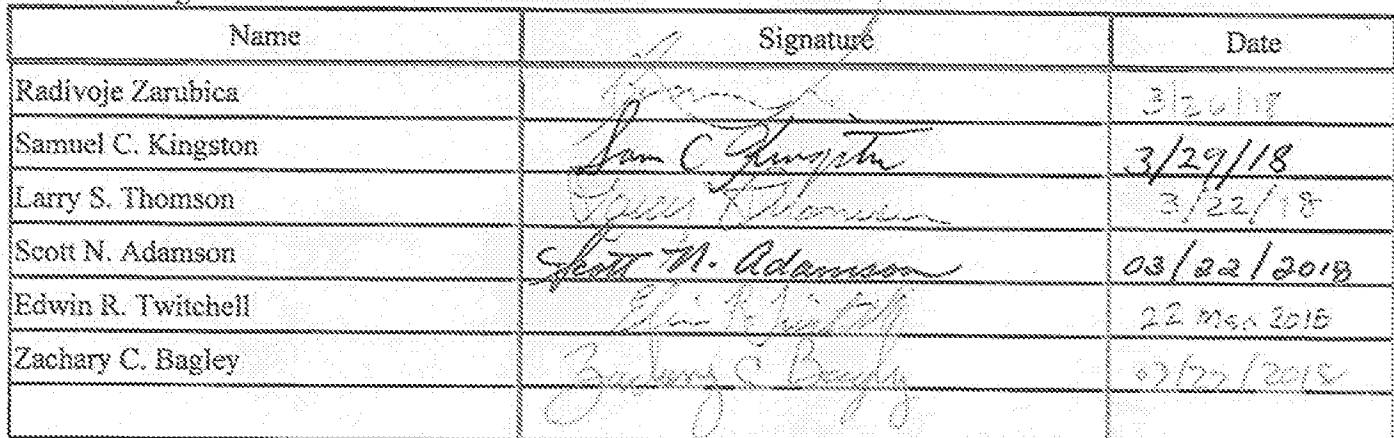 Name Signature Date
Radivoje Zarubica 3/26/18
Samuel C. Kingston Sam C Kingston 3/29/18
Larry S. Thomson 3/22/18
Scott N. Adamson Scott N. Adamson 03/22/2018
Edwin R. Twitchell 22 Mar 2018
Zachary C. Bagley Zachary C Bagley 03/22/2018